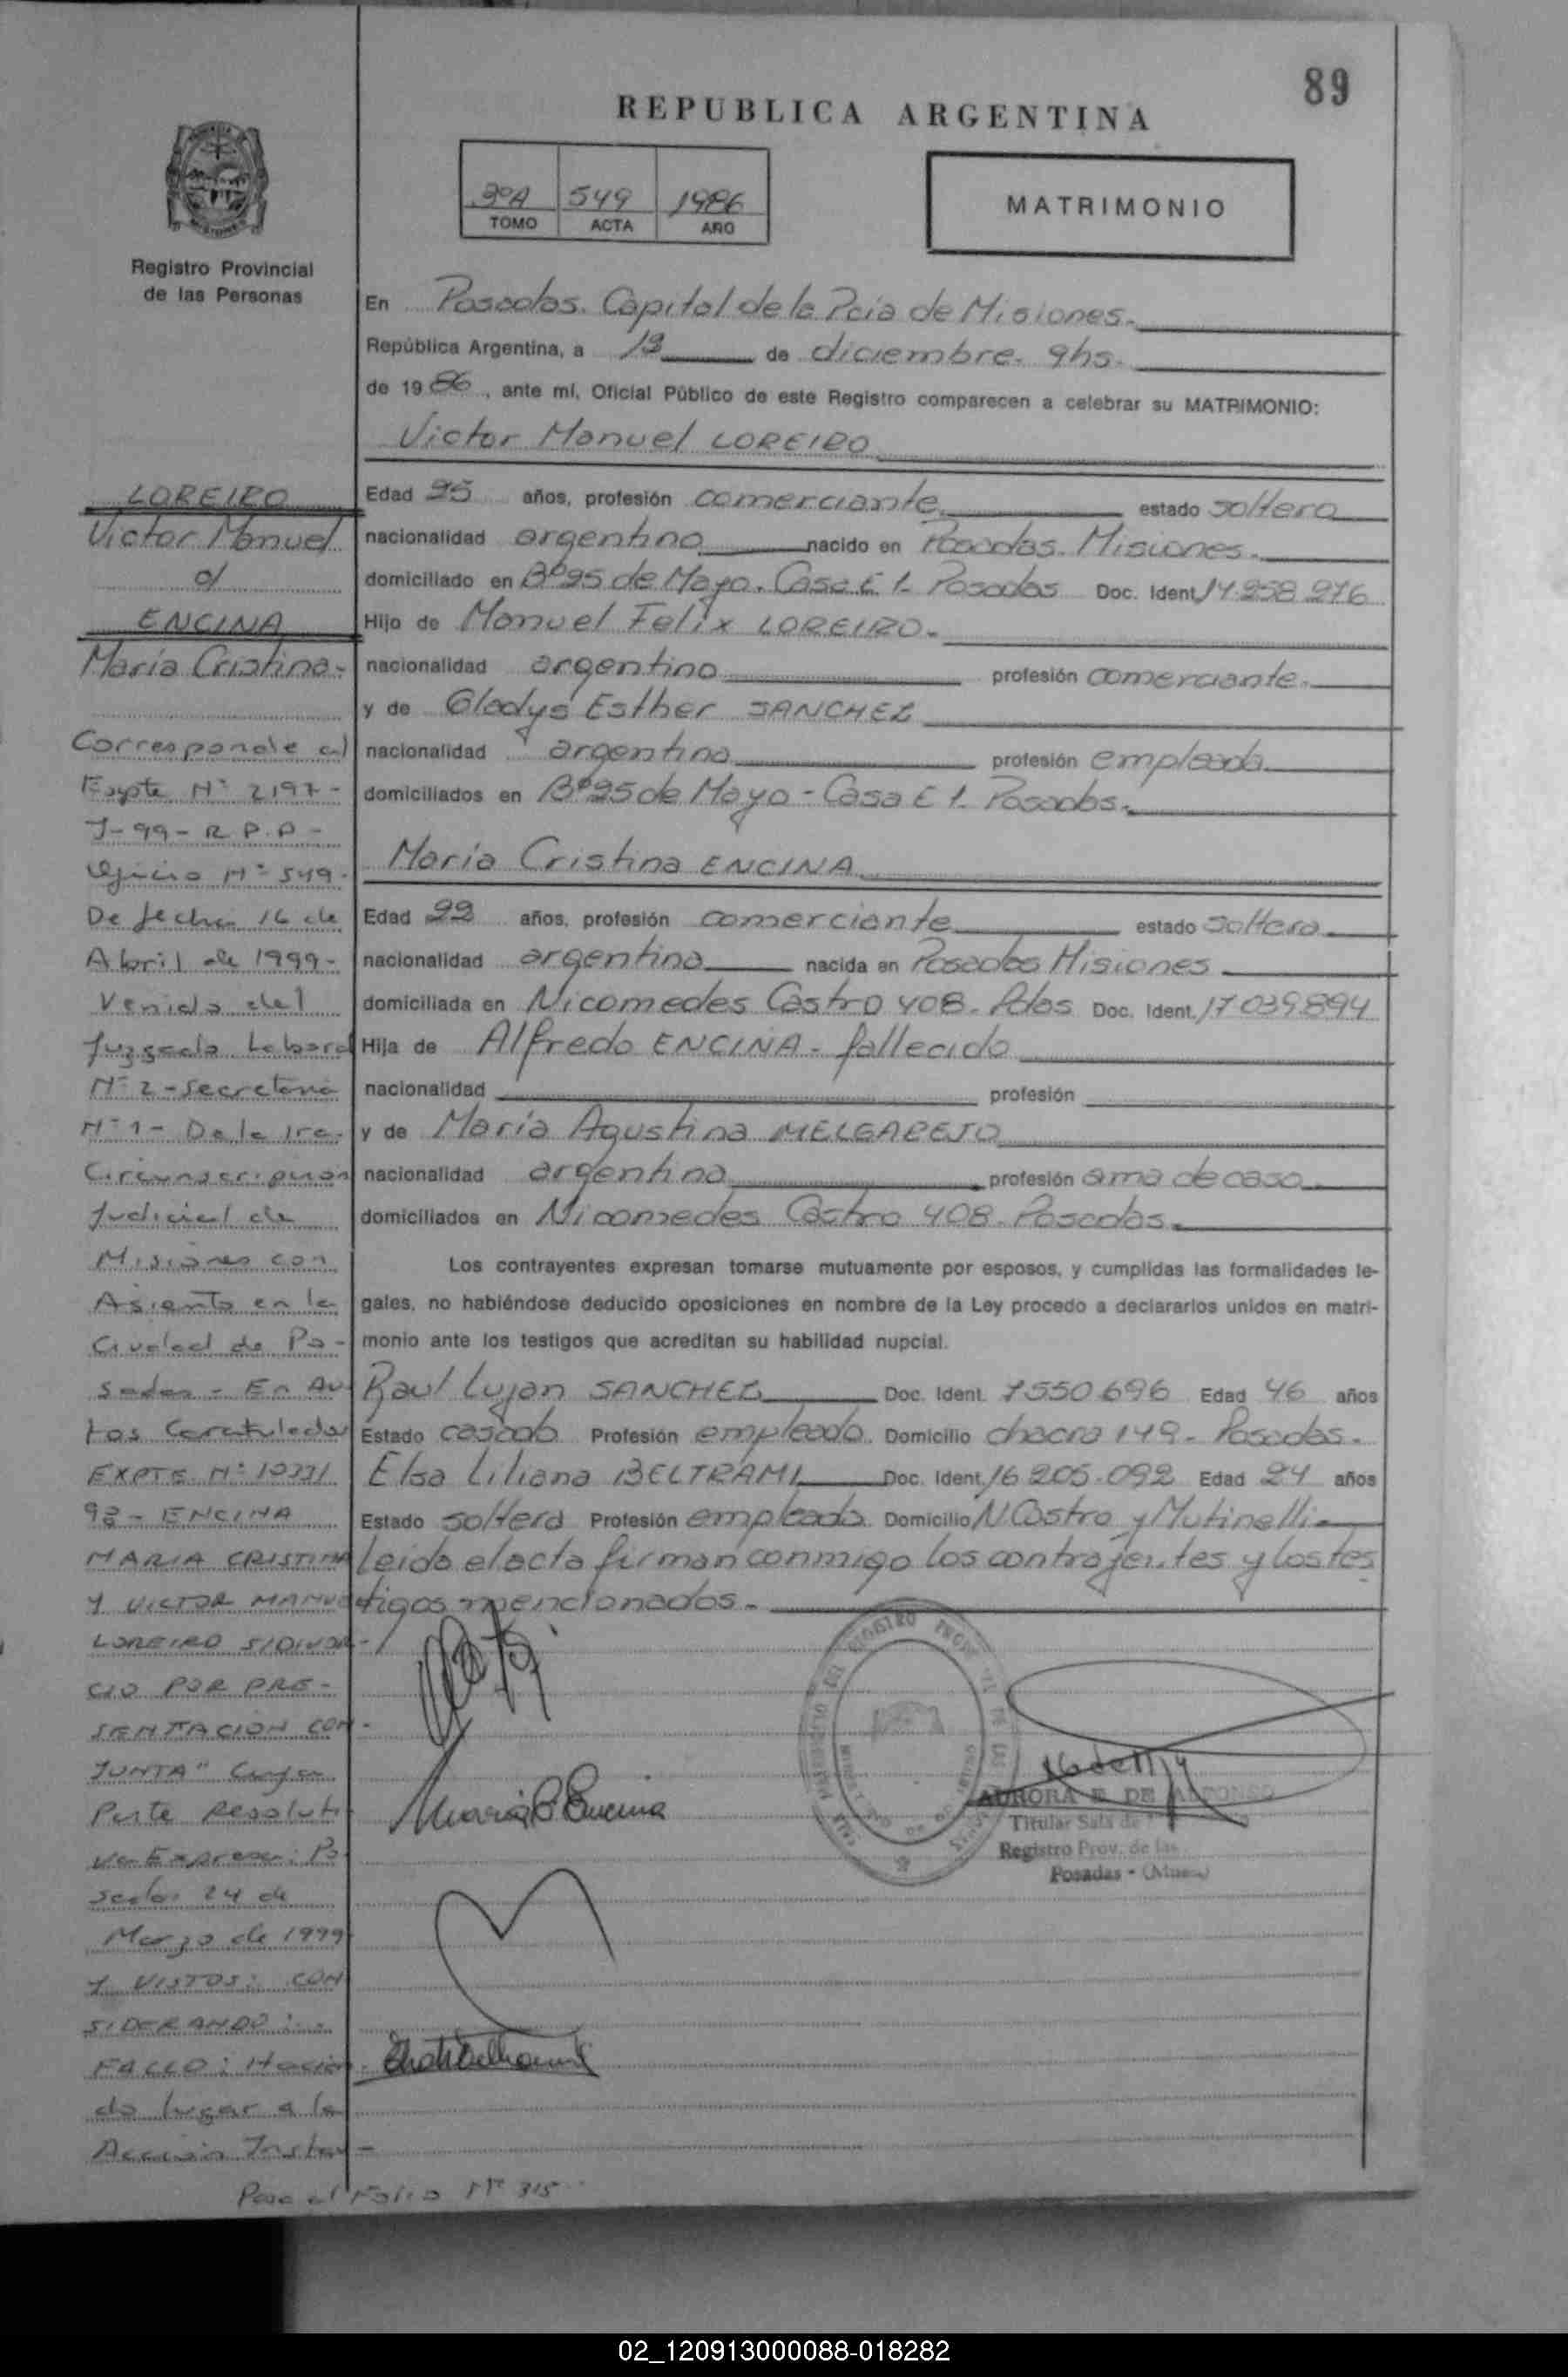 89
REPUBLICA ARGENTINA
3ºA 549 1986
TOMO ACTA AÑO
MATRIMONIO
Registro Provincial
de las Personas
En Posadas. Capital de la Pcia de Misiones.
República Argentina, a 19 de diciembre. 9hs.
de 1986, ante mí, Oficial Público de este Registro comparecen a celebrar su MATRIMONIO:
Victor Manuel LOREIRO
Edad 25 años, profesión comerciante estado soltero
nacionalidad argentino nacido en Posadas. Misiones.
domiciliado en Bº 25 de Mayo. Casa E 1. Posadas Doc. Ident. 14.258.276
Hijo de Manuel Felix LOREIRO.
nacionalidad argentino profesión comerciante.
y de Gladys Esther SANCHEZ
nacionalidad argentina profesión empleada
domiciliados en Bº 25 de Mayo - Casa E 1. Posadas.
María Cristina ENCINA
Edad 22 años, profesión comerciante estado soltera
nacionalidad argentina nacida en Posadas Misiones
domiciliada en Nicomedes Castro 408. Pdas Doc. Ident. 17039894
Hija de Alfredo ENCINA - fallecido
nacionalidad profesión
y de María Agustina MELGAREJO
nacionalidad argentina profesión ama de casa
domiciliados en Nicomedes Castro 408. Posadas.
Los contrayentes expresan tomarse mutuamente por esposos, y cumplidas las formalidades le-
gales, no habiéndose deducido oposiciones en nombre de la Ley procedo a declararlos unidos en matri-
monio ante los testigos que acreditan su habilidad nupcial.
Raul Lujan SANCHEZ Doc. Ident. 7550696 Edad 46 años
Estado casado Profesión empleado. Domicilio chacra 149 - Posadas.
Elsa Liliana BELTRAMI Doc. Ident. 16.205.092 Edad 24 años
Estado soltera Profesión empleada. Domicilio N Castro y Mutinelli
leida el acta firman conmigo los contrayentes y los tes
tigos mencionados.
LOREIRO
Victor Manuel
c/
ENCINA
María Cristina-
Corresponde al
Expte Nº 2197-
J-99- R.P.P-
Oficio Nº 549.
De fecha 16 de
Abril de 1999-
Venido del
Juzgado Laboral
Nº 2 - Secretaria
Nº 1 - De la 1ra.
Circunscripción
Judicial de
Misiones con
Asiento en la
Ciudad de Po-
sadas - En Au-
tos Caratulados
EXPTE. Nº
98 - ENCINA
MARIA CRISTINA
Y VICTOR MANUEL
LOREIRO S/DIVOR-
CIO POR PRE-
SENTACION CON-
JUNTA" Cuya
Parte Resoluti-
va Expresa: Po
sadas 24 de
Marzo de 1999
Y VISTOS: CON
SIDERANDO:..
FALLO: Hacien-
do lugar a la
Acción Instau-
Pasa al Folio Nº 315
Maria C Encina
AURORA E. DE ALFONSO
Titular Sala de
Registro Prov. de las
Posadas - (Mnes.)
02_120913000088-018282